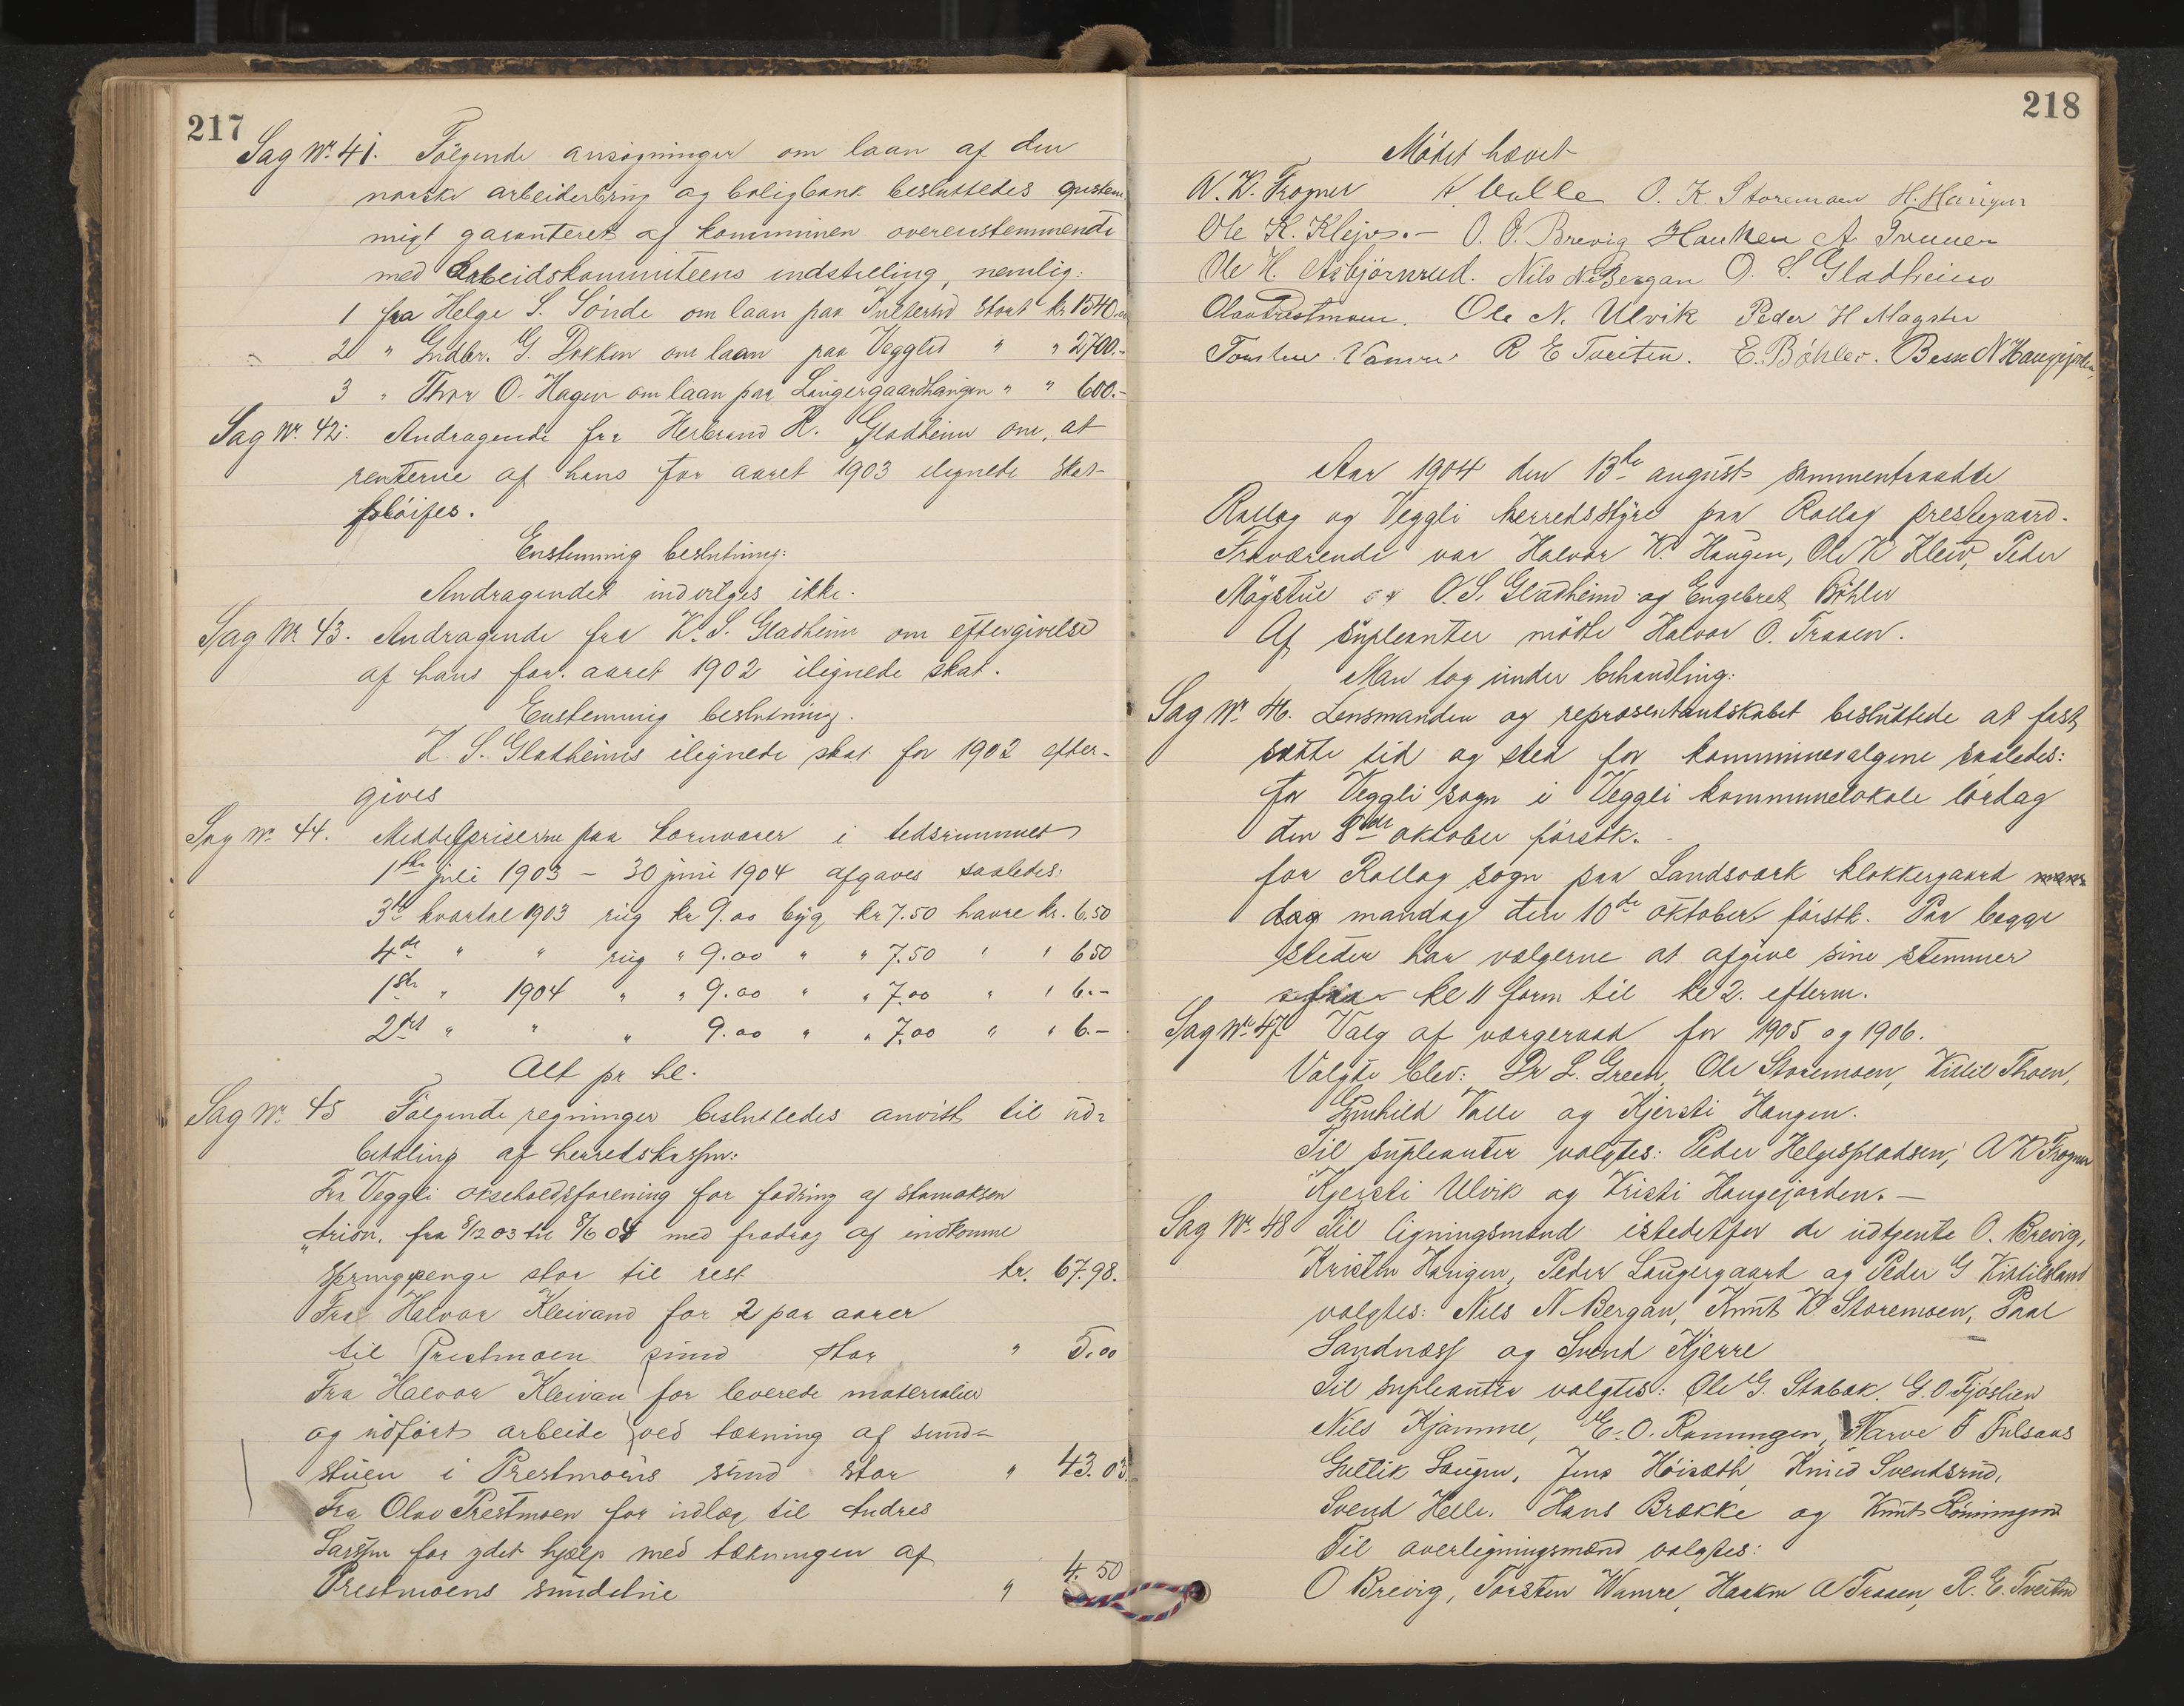 217
Sag No. 41. Følgende ansøgninger om laan af den
norske arbeiderbrug og boligbank besluttedes enstem
migt garanteret af kommunen overensstemmende
med Arbeidskommiteens indstilling, nemlig:
1 fra Helge S. Sönde om laan paa stort kr 1540.00
2 " Gudbr. G. Dokken om laan paa Vegglid " " 2700.-
3 " Thor O. Hagen om laan paa Laugergaardhaugen " " 600.-
Sag No. 42. Andragende fra Herbrand K. Gladheim om, at
renterne af hans for aaret 1903 ilignede skat
sløifes.
Enstemmig beslutning:
Andragendet indvilges ikke.
Sag No 43. Andragende fra K. S. Gladheim om eftergivelse
af hans for aaret 1902 ilignede skat.
Enstemmig beslutning.
K. S. Gladheims ilignede skat for 1902 efter-
gives
Sag No. 44. Middelpriserne paa kornvarer i tidsrummet
1ste juli 1903 - 30 juni 1904 afgaves saaledes:
3die kvartal 1903 rug kr 9.00 byg kr 7.50 havre kr. 6.50
4de " " rug " 9.00 " " 7.50 " " 650
1ste " 1904 " " 9.00 " " 7.00 " " 6.-
2det " " " 9.00 " " 7.00 " " 6.-
Alt pr hl.
Sag No. 45 Følgende regninger besluttedes anvist til ud=
betaling af herredskassen:
Fra Veggli okseholdsforening for fodring af stamoksen
"Arion, fra 8/12 03 til 8/6 04 med fradrag af indkomne
springpenge stor til rest kr. 67.98.
Fra Halvor Kleivand for 2 par aarer
til Prestmoen sund stor " 5.00
Fra Halvor Kleivan for leverede materialier
og udført arbeide ved tækning af sund=
stuen i Prestmoens sund stor " 43.03.
Fra Olav Prestmoen for udlæg til Andres
Larssen for ydet hjælp med tækningen af
Prestmoens sundstue " 4.50
218
Mødet hævet
A. K. Trogner K Valle O. K. Storemoen H. Haugen
Ole K. Klejv.- O. O. Brevig Haaken A Traaen
Ole H. Asbjørnrud. Nils N. Bergan O. S. Gladheim
Olav Prestmoen. Ole N. Ulvik Peder H Magstu
Torsten Vamre R E Tveiten. E. Bøhler. N Haugejorden
Aar 1904 den 13de august sammentraadte
Rollag og Veggli herredsstyre paa Rollag prestegaard.
Fraværende var Halvor K. Haugen, Ole K Kleiv, Peder
Møgstue O. S. Gladheim og Engebret Bøhler
Af supleanter mødte Halvor O. Traaen.
Man tog under behandling:
Sag No. 46. Lensmanden og repræsentantskabet besluttede at fast
sætte tid og sted for kommunevalgene saaledes:
for Veggli sogn i Veggli kommunelokale lørdag
den 8de oktober førstk.
for Rollag sogn paa Landsværk klokkergaard
dag mandag den 10de oktober førstk. Paa begge
steder har vælgerne at afgive sine stemmer
fra kl 11 form til kl 2. efterm.
Sag No. 47 Valg af værgeraad for 1905 og 1906.
Valgte blev: Dr L. Green, Ole Storemoen, Kittil Thoen,
Gunhild Valle og Kjersti Haugen.
Til supleanter valgtes: Peder Helgespladsen, A K Trogner
Kjersti Ulvik og Kristi Haugejorden.-
Sag No. 48 Til ligningsmænd istedetfor de udtjente O. Brevig,
Kristen Haugen, Peder Laugergaard og Peder G Kittilsland
valgtes: Nils N Bergan, Knut K Storemoen, Paal
Sandnæss og Svend Kjerre
Til supleanter valgtes: Ole G. Stabæk. G. O Fjøslien
Nils Kjømme, E. O. Ramungen, Narve T Fulsaas
Guttik Laugen, Jens Høisæth, Knud Svendsrud,
Svend Helle. Hans Brække og Knut
Til overligningsmænd valgtes:
O Brevig, Torsten Wamre, Haaken A Traaen, R. E. Tveiten